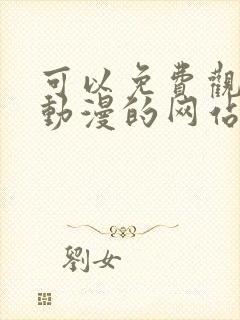 可以免費觀
動漫的网佔
劉女